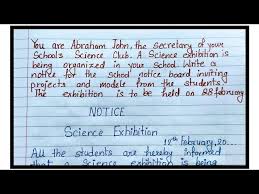 You are Abraham John, the secretary of your
School's Science Club. A Science exhibition is
being organized in your school. Write a
notice for the school notice board inviting
projects and models from the students
The exhibition is to be held on 28 february
NOTICE
Science Exhibition
12th February, 20...
All the students are hereby informed
that a Science exhibition is being